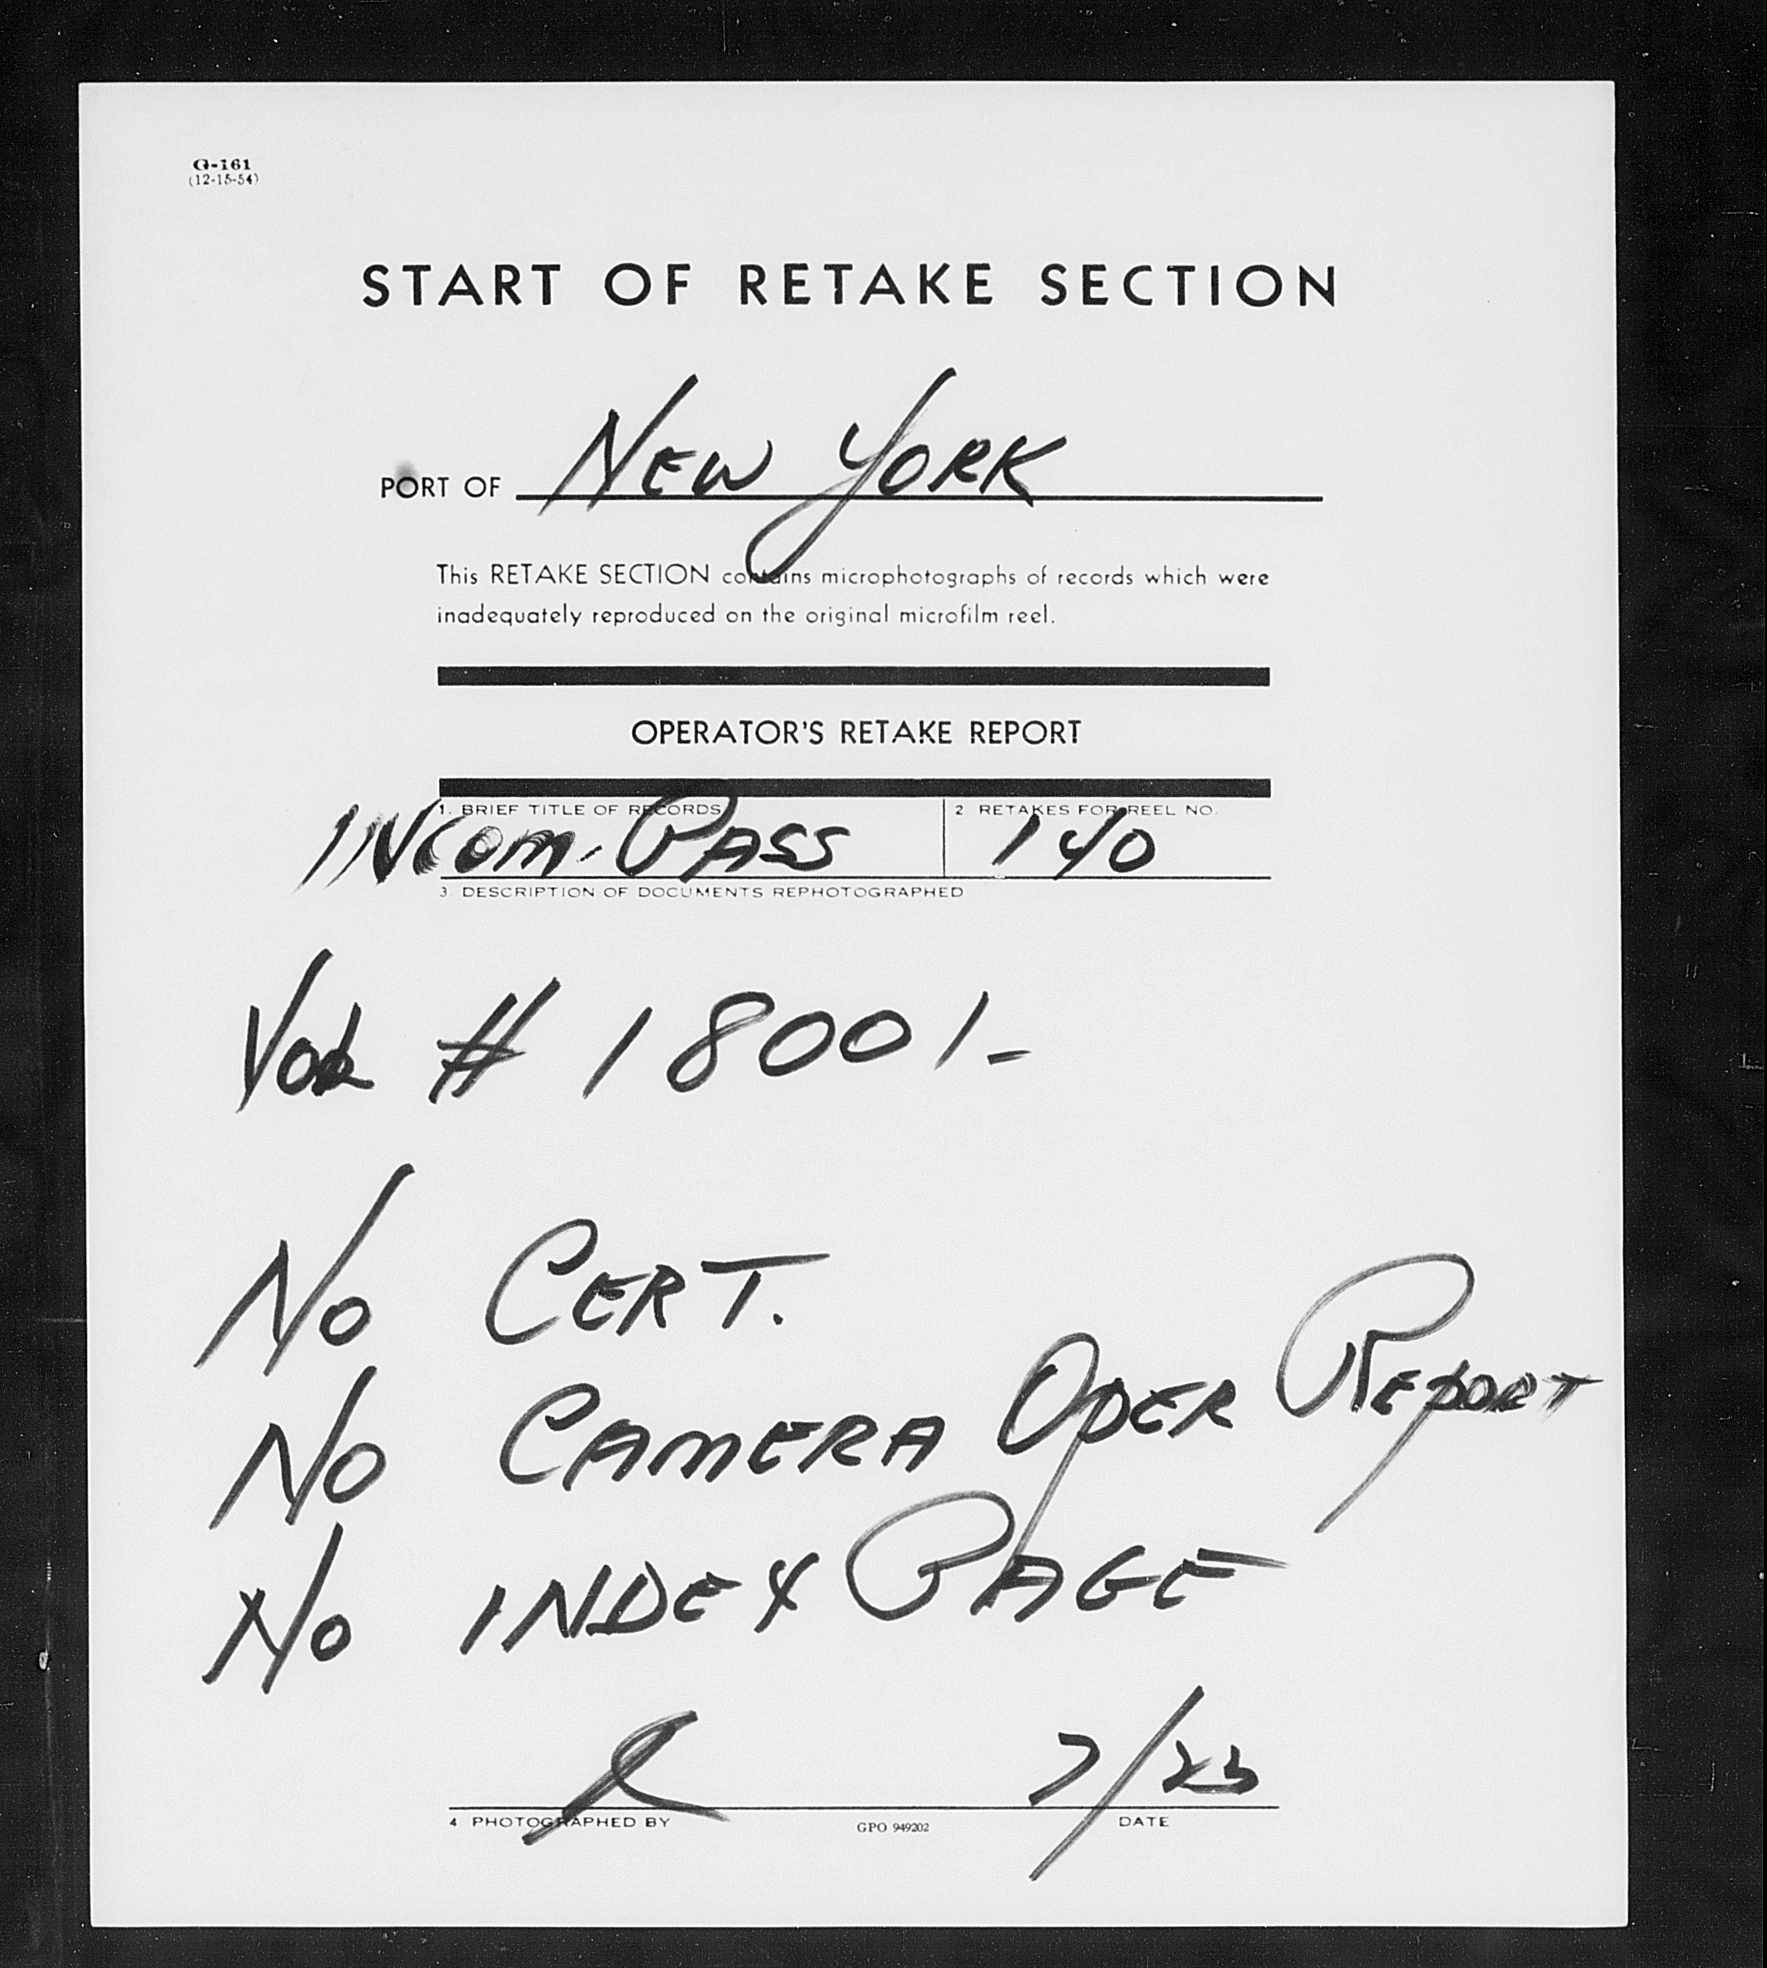 G-161
(12-15-54)
START OF RETAKE SECTION
PORT OF NEW YORK
This RETAKE SECTION contains microphotographs of records which were
inadequately reproduced on the original microfilm reel.
OPERATOR'S RETAKE REPORT
1. BRIEF TITLE OF RECORDS
2 RETAKES FOR REEL NO.
INCOM. PASS
140
3 DESCRIPTION OF DOCUMENTS REPHOTOGRAPHED
# 18001-
No CERT.
No CAMERA OPER REPORT
No INDEX PAGE
7/23
4 PHOTOGRAPHED BY
GPO 949202
DATE